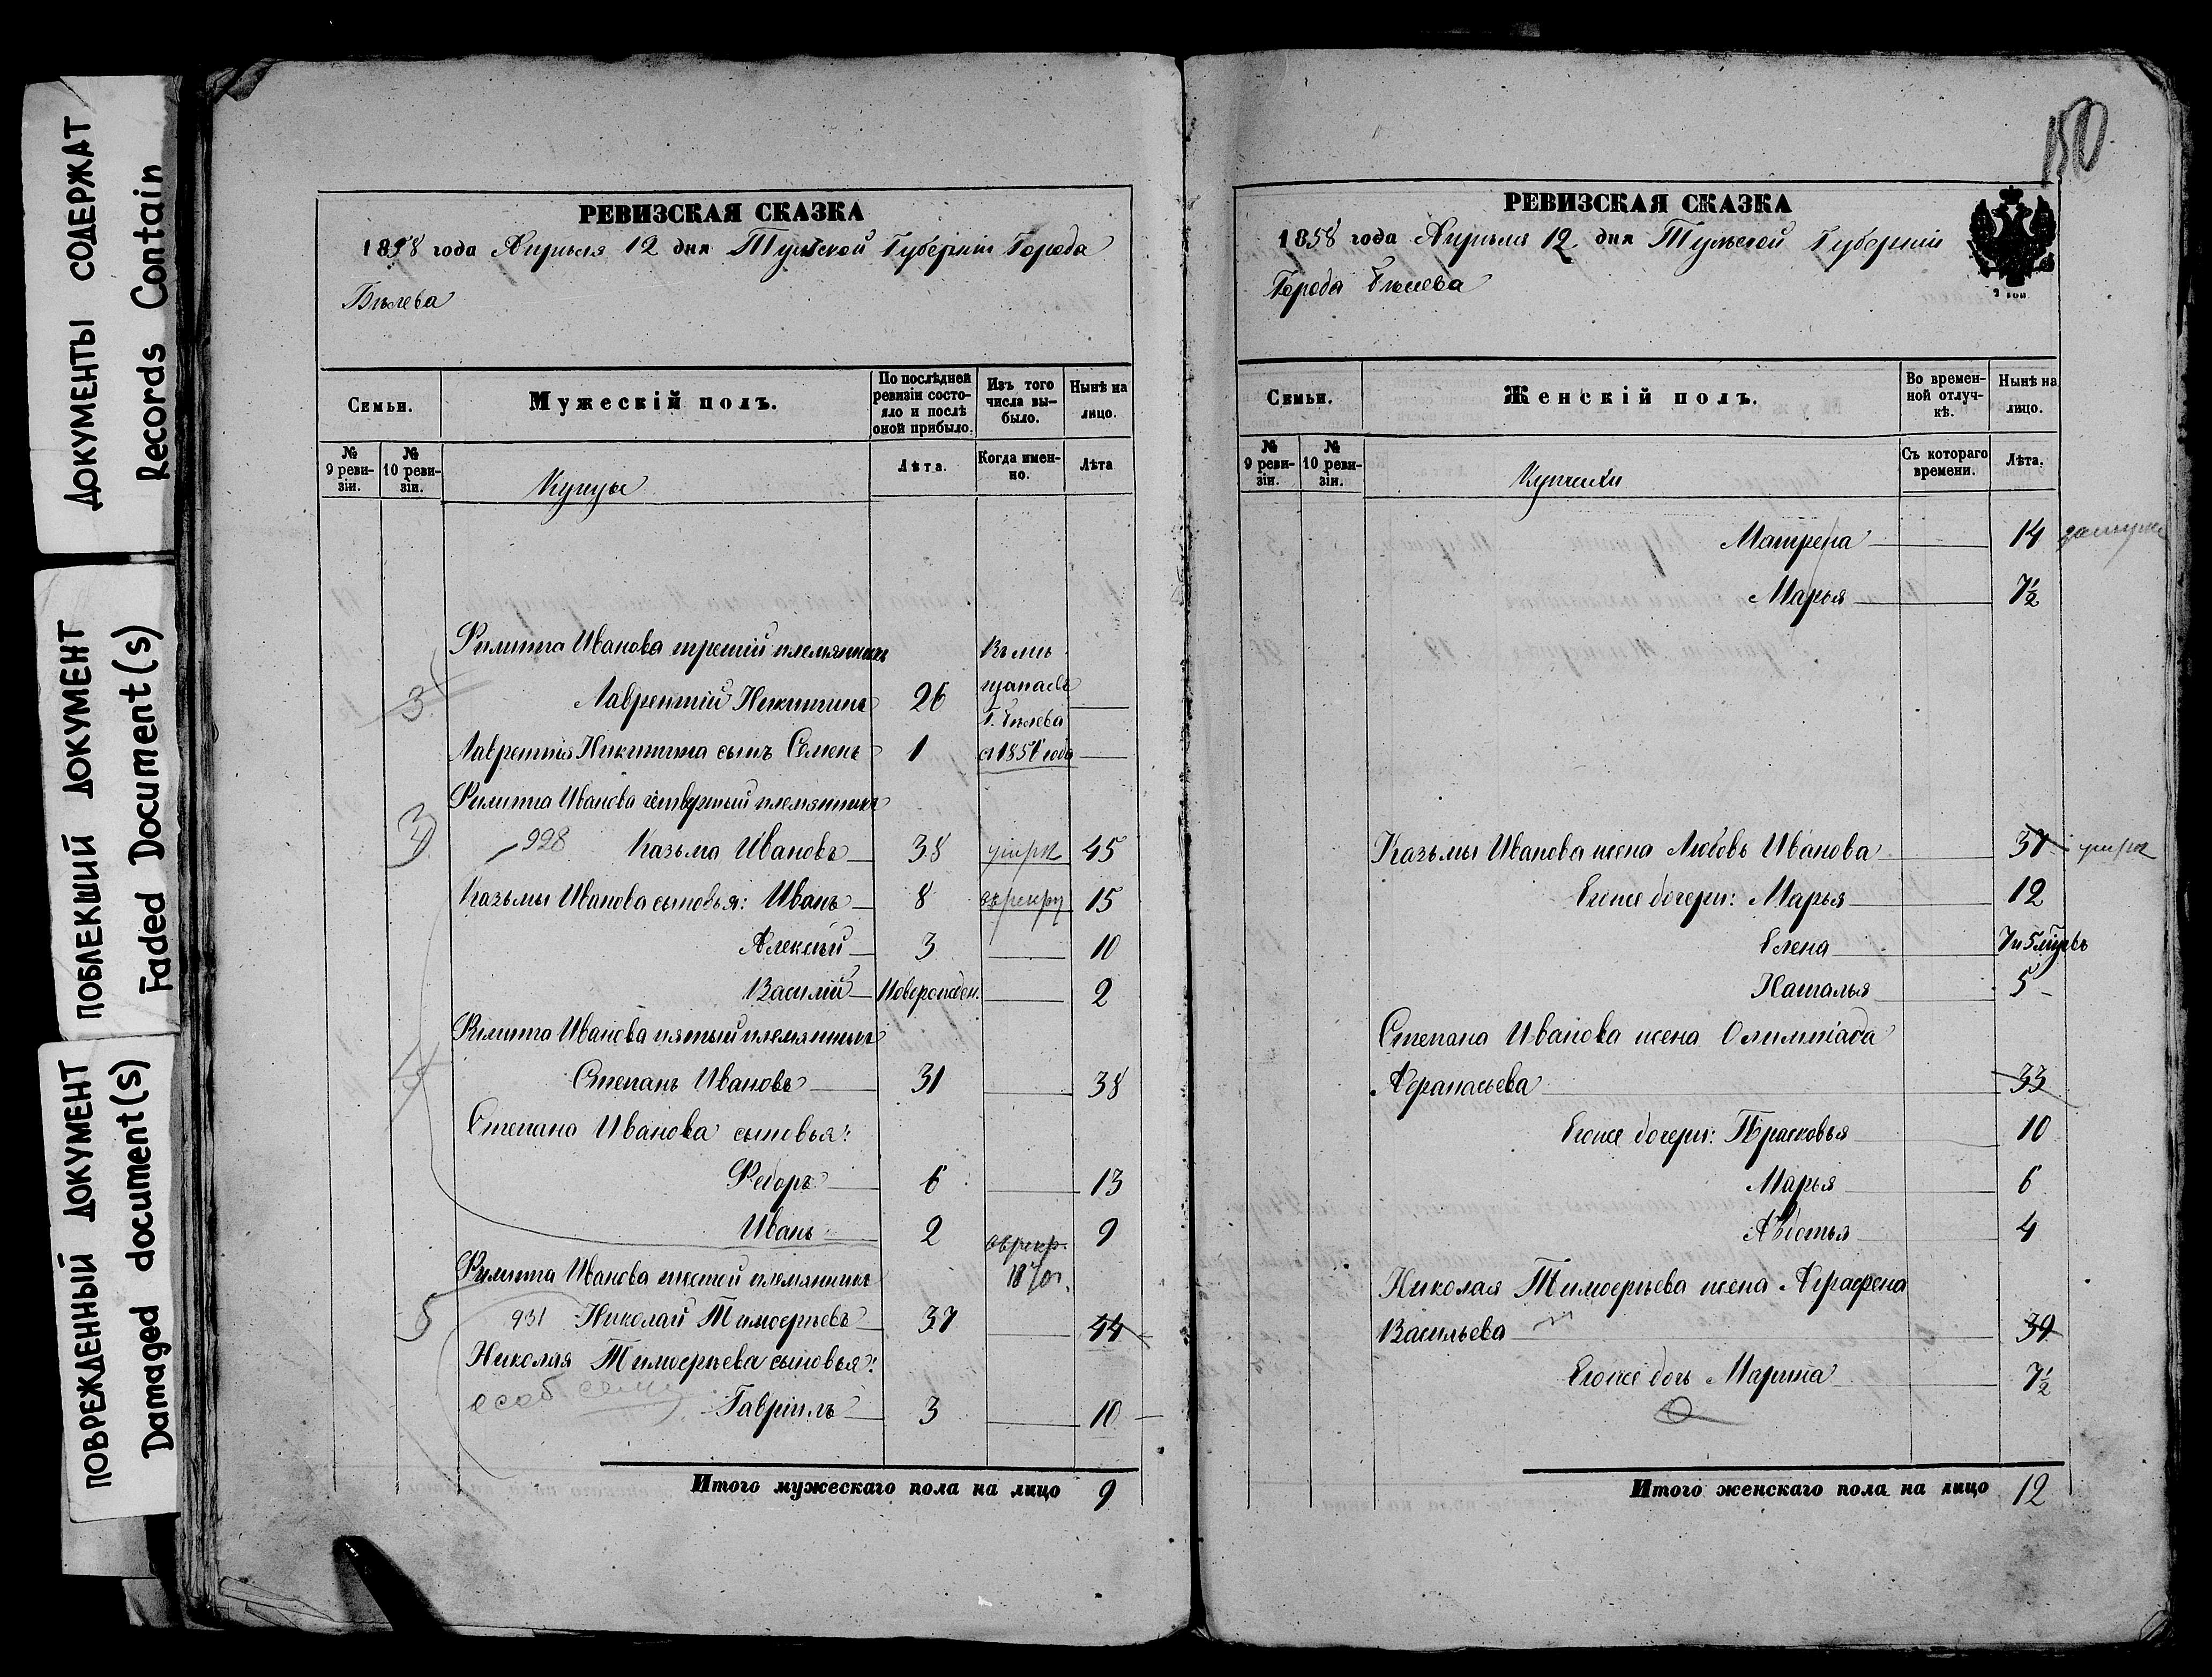 ДОКУМЕНТЫ СОДЕРЖАТ
Records Contain
ПОБЛЕКШИЙ ДОКУМЕНТ
Faded Document(s)
ПОВРЕЖДЕННЫЙ ДОКУМЕНТ
Damaged document(s)
РЕВИЗСКАЯ СКАЗКА
1858 года Апрѣля 12 дня Тульской Губерніи Города
Бѣлева
Семьи.
Мужескій полъ.
По послѣдней ревизіи состояло и послѣ оной прибыло.
Изъ того числа выбыло.
Нынѣ на лицо.
№ 9 ревизіи.
№ 10 ревизіи.
Купцы
Лѣта.
Когда именно.
Лѣта
Филиппа Иванова третій племянникъ Въ мѣ
3 Лаврентій Никитинъ 26 щанаcъ
Г. Бѣлева
Лаврентія Никитина сынъ Семенъ 1 съ 1851 года
Филиппа Иванова четвертый племянникъ
3 928 Казьма Ивановъ 38 45
Казьмы Иванова сыновья: Иванъ 8 15
Алексѣй 3 10
Василій Новорожден. 2
Филиппа Иванова пятый племянникъ
4 Степанъ Ивановъ 31 38
Степана Иванова сыновья:
Федоръ 6 13
Иванъ 2 9
Филиппа Иванова шестой племянникъ
5 931 Николай Тимоѳѣевъ 37 44
Николая Тимоѳѣева сыновья:
особ
Гавріилъ 3 10
Итого мужескаго пола на лицо 9
150
РЕВИЗСКАЯ СКАЗКА
1858 года Апрѣля 12 дня Тульской Губерніи
Города Бѣлева
Семьи.
Женскій полъ.
Во временной отлучкѣ.
Нынѣ на лицо.
№ 9 ревизіи.
№ 10 ревизіи.
Купчихи
Съ котораго времени.
Лѣта.
Матрена 14 замуже
Марья 7½
Казьмы Иванова жена Любовь Иванова 37
Егоже дочери: Марья 12
Елена 7
Наталья 5
Степана Иванова жена Олимпіада
Аѳанасьева 33
Егоже дочери: Прасковья 10
Марья 6
Авдотья 4
Николая Тимоѳѣева жена Аграфена
Васильева 39
Егоже дочь Марина 7½
Итого женскаго пола на лицо 12